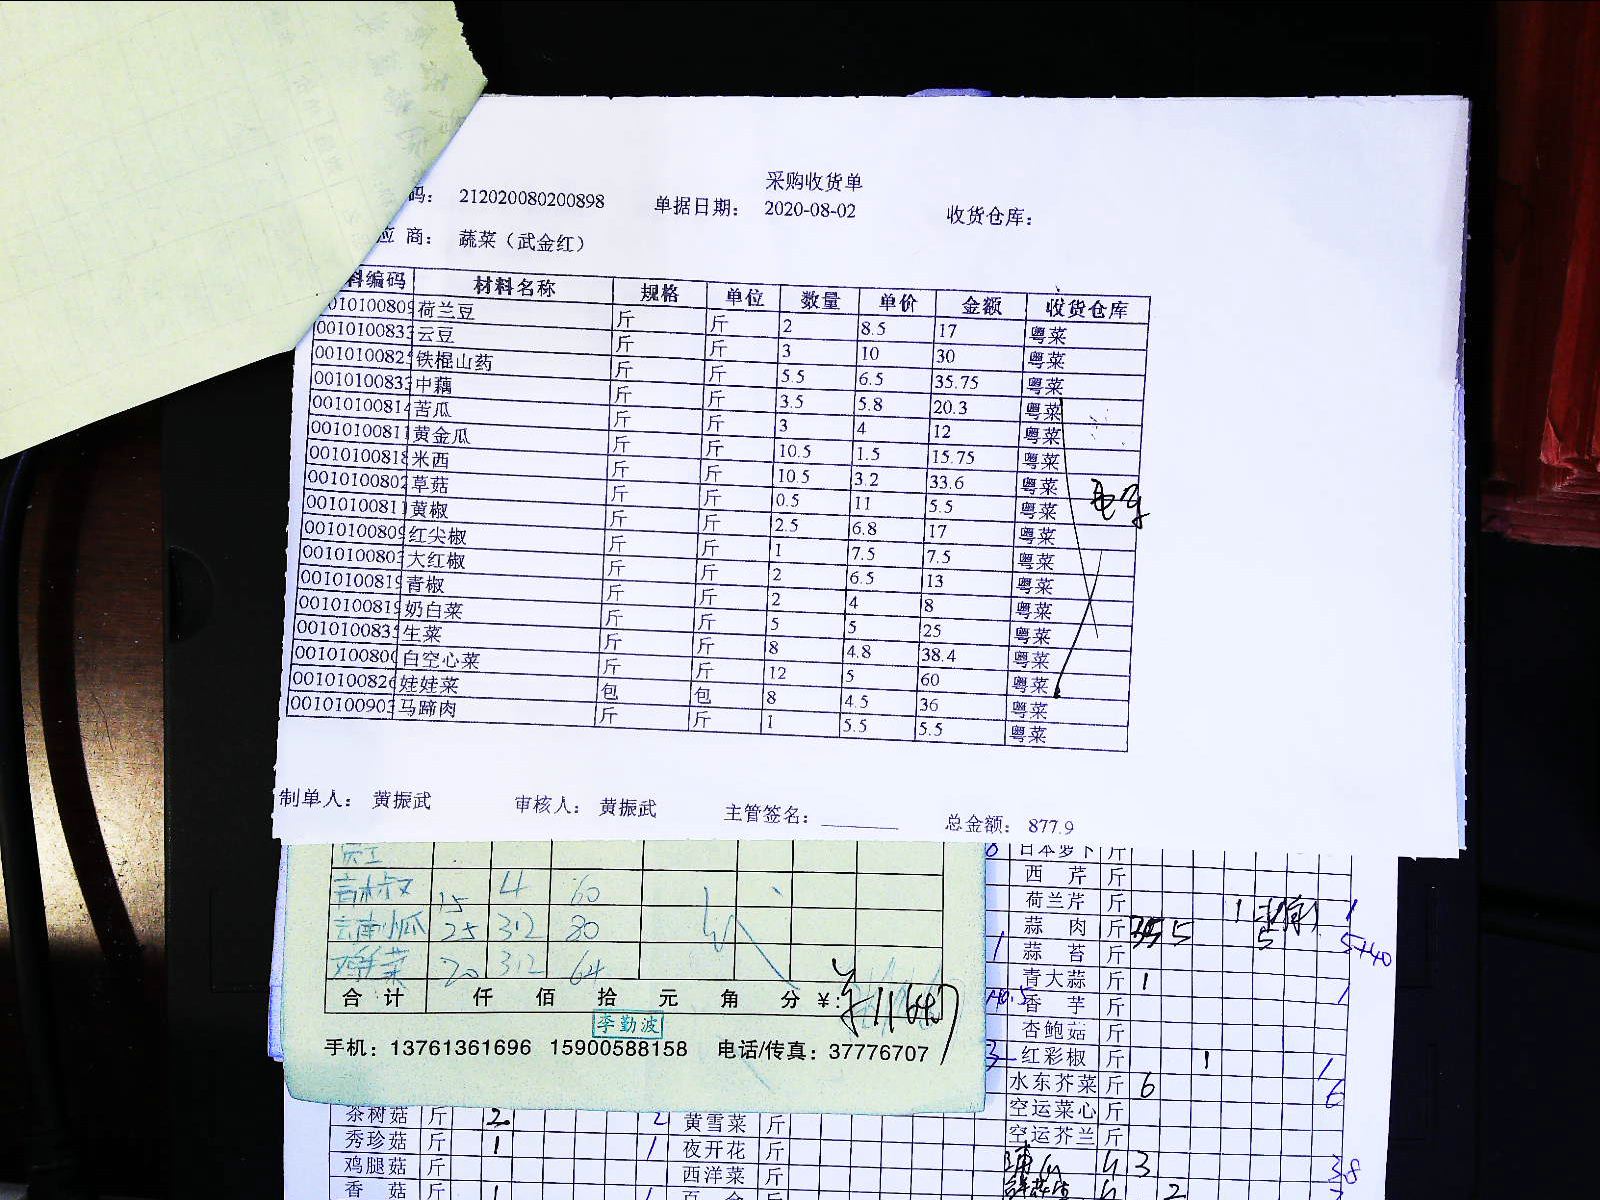 采购收货单
码： 212020080200898 单据日期： 2020-08-02 收货仓库：
应 商： 蔬菜（武金红）
料编码 材料名称 规格 单位 数量 单价 金额 收货仓库
0010100809 荷兰豆 斤 斤 2 8.5 17 粤菜
001010083 云豆 斤 斤 3 10 30 粤菜
001010082 铁棍山药 斤 斤 5.5 6.5 35.75 粤菜
001010083 中藕 斤 斤 3.5 5.8 20.3 粤菜
001010081 苦瓜 斤 斤 3 4 12 粤菜
001010081 黄金瓜 斤 斤 10.5 1.5 15.75 粤菜
001010081 米西 斤 斤 10.5 3.2 33.6 粤菜
001010080 草菇 斤 斤 0.5 11 5.5 粤菜
001010081 黄椒 斤 斤 2.5 6.8 17 粤菜
001010080 红尖椒 斤 斤 1 7.5 7.5 粤菜
001010080 大红椒 斤 斤 2 6.5 13 粤菜
001010081 青椒 斤 斤 2 4 8 粤菜
001010081 奶白菜 斤 斤 5 5 25 粤菜
001010083 生菜 斤 斤 8 4.8 38.4 粤菜
001010080 白空心菜 斤 斤 12 5 60 粤菜
001010082 娃娃菜 包 包 8 4.5 36 粤菜
001010090 马蹄肉 斤 斤 1 5.5 5.5 粤菜
制单人： 黄振武 审核人： 黄振武 主管签名： 总金额： 877.9
青椒 15 4 60
云南小瓜 25 3.2 80
鸡毛菜 20 3.2 64
合 计 仟 佰 拾 元 角 分 ¥:
李勤波
手机：13761361696 15900588158 电话/传真：37776707
日本萝卜 斤
西 芹 斤
荷兰芹 斤 1 1
蒜 肉 斤 5 5
蒜 苔 斤
青大蒜 斤 1 1
香 芋 斤
杏鲍菇 斤
红彩椒 斤 1 1
水东芥菜 斤 6 6
空运菜心 斤
空运芥兰 斤
茶树菇 斤 2 2 黄雪菜 斤
秀珍菇 斤 1 1 夜开花 斤
鸡腿菇 斤 西洋菜 斤
香 菇 斤 1 1 百 合 斤